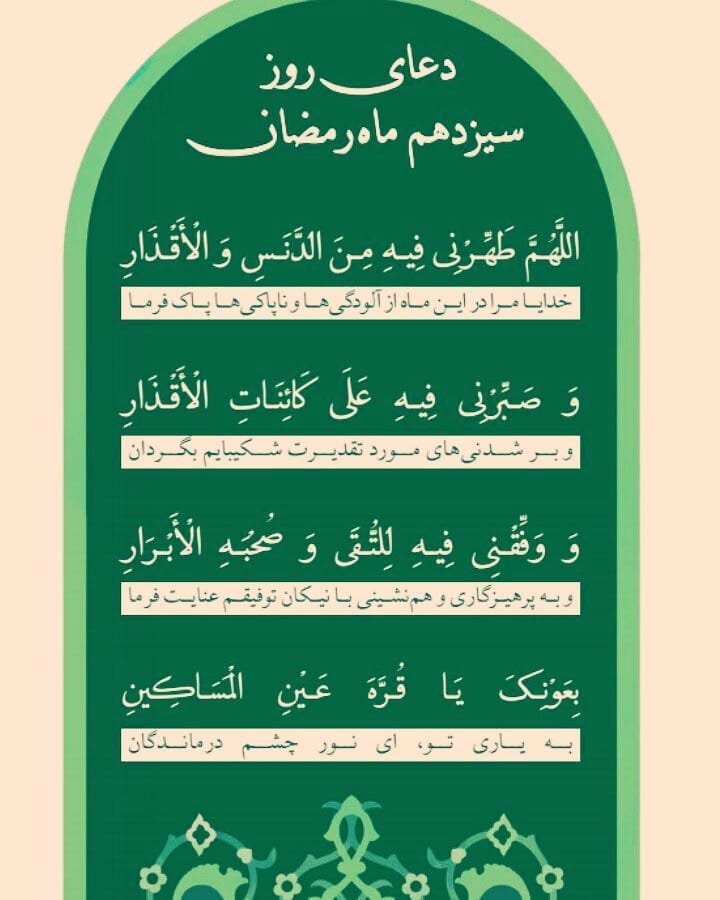 دعای روز
سیزدهم ماه رمضان
اللَّهُمَّ طَهِّرْنِی فِیهِ مِنَ الدَّنَسِ وَ الْأَقْذَارِ
خدایا مرا در این ماه از آلودگی‌ها و ناپاکی‌ها پاک فرما
وَ صَبِّرْنِی فِیهِ عَلَی کَائِنَاتِ الْأَقْذَارِ
و بر شدنی‌های مورد تقدیرت شکیبایم بگردان
وَ وَفِّقْنِی فِیهِ لِلتُّقَی وَ صُحْبَهِ الْأَبْرَارِ
و به پرهیزگاری و هم‌نشینی با نیکان توفیقم عنایت فرما
بِعَوْنِکَ یَا قُرَّهَ عَیْنِ الْمَسَاکِینِ
به یاری تو، ای نور چشم درماندگان